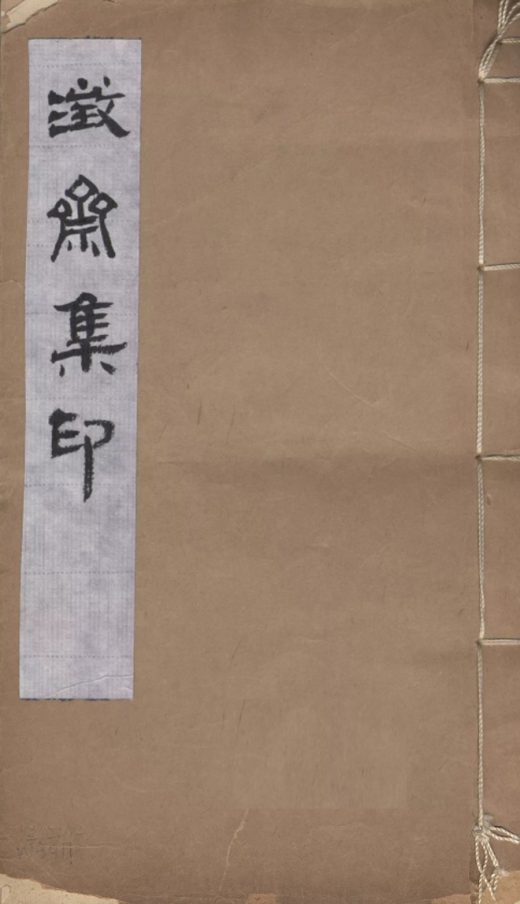 澂齋集印